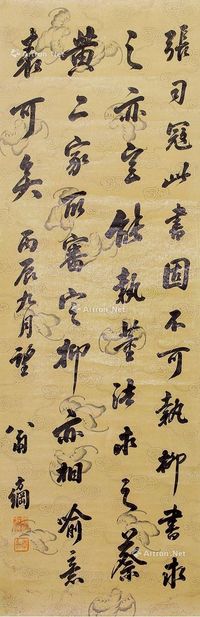 張司寇此書固不可執柳書求
之亦豈能執董法求之蔡
黃二家所審定抑亦相喻意
表可矣 丙辰九月望 翁方綱
Artron.Net